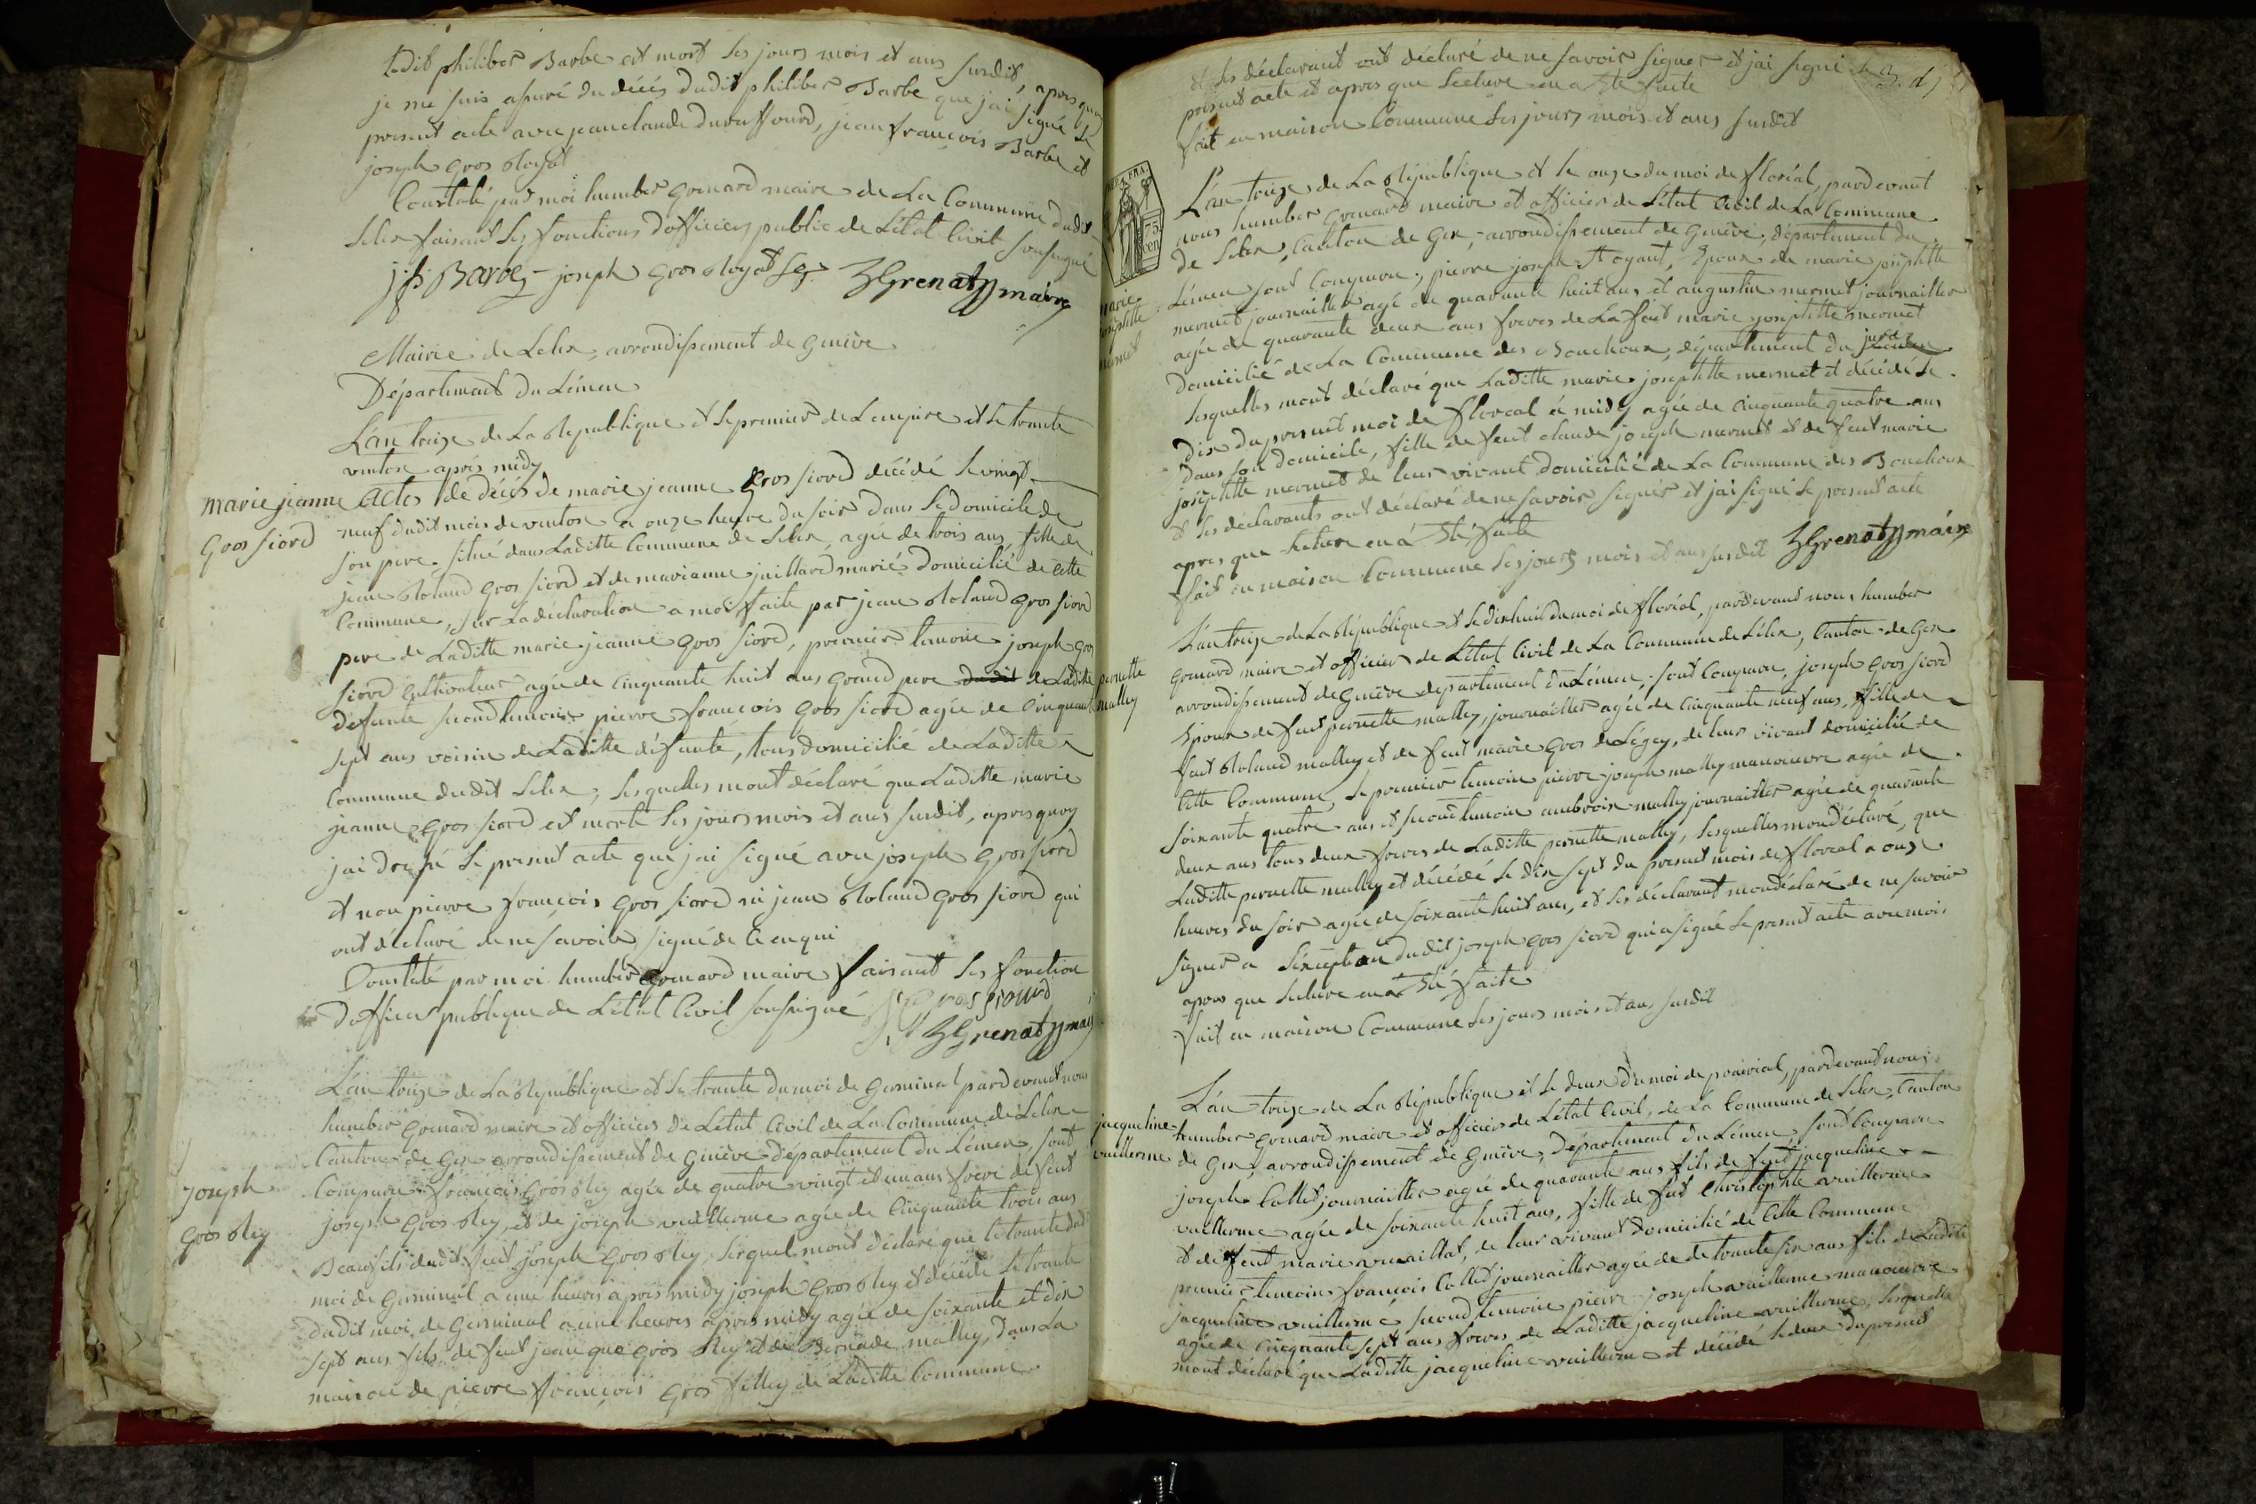 Ledit philiber Barbe est mort les jours mois et ans susdit, apres quoy
je me suis assuré du décés dudit philiber Barbe que jai signé le
present acte avec jeanclaude durouffourd, jean françois Barbe et
joseph gros Royat
Constaté par moi humber grenard maire de La Commune dudit
Lelex faisant les fonctions dofficier public de Létat Civil soussigné
j f Barbe joseph gros Royat HGrenard maire
Mairie de Lelex, arrondissement de Genève
Département du Léman
L'an treize de La République et le premier de Lempire et le trente
ventose après midy
marie jeanne
gros fiord
Actes de décés de marie jeanne gros fiord décédé le vingt
neuf dudit mois de ventose a onze heure du soir dans le domicile de
son pere, situé dans Laditte Commune de Lelex, agée de trois ans, fille de
jean Roland gros fiord et de marianne juillard marié domicilié de cette
Commune, sur La déclaration a moi faite par jean Roland gros fiord
pere de Laditte marie jeanne gros fiord, premier temoin joseph gros
fiord Cultivateur agée de cinquante huit ans grand pere dudit de Laditte
defunte second temoin pierre françois gros fiord agée de cinquante
sept ans voisin de Laditte défunte, tous domicilié de Laditte
Commune dudit Lelex, lesquelles mont déclaré que Laditte marie
jeanne gros fiord est morte les jours mois et ans susdit, apres quoy
jai dressé le present acte que jai signé avec joseph gros fiord
et non pierre françois gros fiord ni jean Roland gros fiord qui
ont déclaré de ne savoir signé de ce enqui
Constaté par moi humber grenard maire faisant les fonction
dofficier publique de Létat Civil soussigné
HGrenard maire
L'an treize de La République et le trente du moi de Germinal pardevant nous
humber grenard maire et officier de Létat Civil de La Commune de Lelex
Canton de Gex arrondissement de Genève Département du Léman, sont
joseph
gros Rey
Comparu françois gros Rey agée de quatre vingt et un ans frere de feut
joseph gros Rey, et de joseph vuillerme agée de cinquante trois ans
Beaufils dudit feut joseph gros Rey, lesquel mont déclaré que le trente dudit
moi de Germinal a une heures après midy joseph gros Rey est décédé le trente
dudit moi de Germinal a une heures après midy agée de soixante et dix
sept ans fils de feut jean que gros Rey et de Bernade malley, dans La
maison de pierre françois gros filley de Laditte Commune
et les déclarant ont déclaré de ne savoir signer et jai signé le
present acte et apres que lecture en a été faite
fait en maison Commune les jours mois et ans susdit
75
cen
marie
josephtte
mermet
L'an treize de La République et le onze du moi de floréal, pardevant
nous humber grenard maire et officier de Létat Civil de La Commune
de Lelex, Canton de Gex, arrondissement de Genève, département du
Léman sont Comparu, pierre joseph Royant, Epoux de marie josephtte
mermet journailler agé de quarante huit ans et augustin mermet journailler
agée de quarante deux ans freres de La feut marie josephtte mermet
domicilié de La Commune des Bouchoux, département du jura
lesquelles mont déclaré que Laditte marie josephtte mermet et décédé le
dix du present moi de floreal à midy agée de cinquante quatre ans
dans son domicile, fille de feut claude joseph mermet et de feut marie
josephtte mermet de leur vivant domicilié de La Commune des Bouchoux
et les déclarants ont déclaré de ne savoir signér et jai signé le present acte
apres que lecture en à été faite
fait en maison Commune les jours mois et ans susdit HGrenard maire
pernette
malley
L'an treize de La République et le dixhuit du moi de floréal, pardevant nous humber
grenard maire et officier de Létat Civil de La Commune de Lélex, Canton de Gex
arrondissement de Genève département du Léman, sont Comparu, joseph gros fiord
Epoux de feut pernette malley, journailler agée de cinquante neuf ans, fille de
feut Roland malley et de feut marie gros de Légey, de leur vivant domicilié de
cette Commune, le premier temoin pierre joseph malley manoeuvre agée de
soixante quatre ans et second temoin ambroise malley journailler agée de quarante
deux ans tous deux freres de Laditte pernette malley, lesquelles mon déclaré, que
Laditte pernette malley et décédé le dix sept du present mois de floreal a onze
heures du soir agée de soixante huit ans, et les déclarant mon déclaré de ne savoir
signer a Léxception dudit joseph gros fiord qui a signé le present acte avec moi
apres que lecture en a été faite
fait en maison Commune les jours mois et ans susdit
jacqueline
vuillerme
L'an treize de La République et le deux du moi de prairial, pardevant nous
humber grenard maire et officier de Létat Civil, de La Commune de Lelex, Canton
de Gex, arrondissement de Genève, Département du Léman, sont Comparu
joseph Collet journailler agée de quarante ans fils de feut jacqueline
vuillerme agée de soixante huit ans, fille de feut Christophle vuillerme
et de feut marie vuaillat, de leur vivant domicilié de cette Commune
premier temoin françois Collet journailler agée de de trente six ans fils de Laditte
jacqueline vuillermé second temoin pierre joseph vuillerme manoeuvre
agée de cinquante sept ans freres de Laditte jacqueline vuillerme, lesquelles
mont déclaré que Laditte jacqueline vuillerme et décédé le deux du present